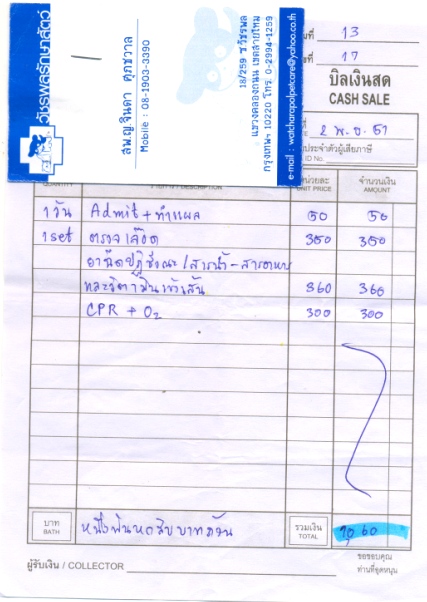 วัชรพลรักษาสัตว์
สพ.ญ.จินดา ศุภชวาล
Mobile : 08-1903-3390
18/259 ซ.วัชรพล
แขวงคลองถนน เขตสายไหม
กรุงเทพฯ 10220 โทร. 0-2994-1259
e-mail : watcharapolpetcare@yahoo.co.th
ที่ 13
ที่ 17
บิลเงินสด
CASH SALE
2 พ.ย. 51
ประจำตัวผู้เสียภาษี
ID No.
DESCRIPTION หน่วยละ จำนวนเงิน
UNIT PRICE AMOUNT
1 วัน Admit + ทำแผล 50 50
1 set ตรวจเลือด 350 350
ยาฉีดปฏิชีวนะ / สารน้ำ - สารอาหาร
และวิตามินเข้าเส้น 360 360
CPR + O2 300 300
บาท หนึ่งพันหกสิบบาทถ้วน รวมเงิน 1060
BATH TOTAL
ผู้รับเงิน / COLLECTOR
ขอขอบคุณ
ท่านที่อุดหนุน